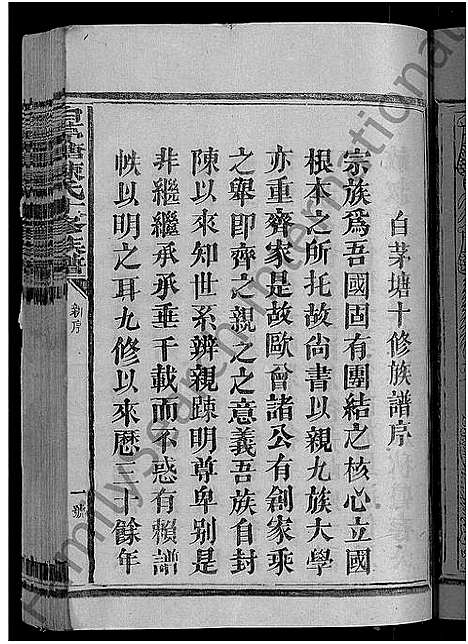 白茅塘十修族譜序
宗族爲吾國固有團結之核心立國
根本之所托故尚書以親九族大學
亦重齊家是故歐曾諸公有創家乘
之舉即齊之親之之意義吾族自封
陳以來知世系辨親踈明尊卑别是
非繼繼承承垂千載而不惑有賴譜
帙以明之耳九修以來歷三十餘年
陳氏十修族譜
新序
一號
FamilySearch International